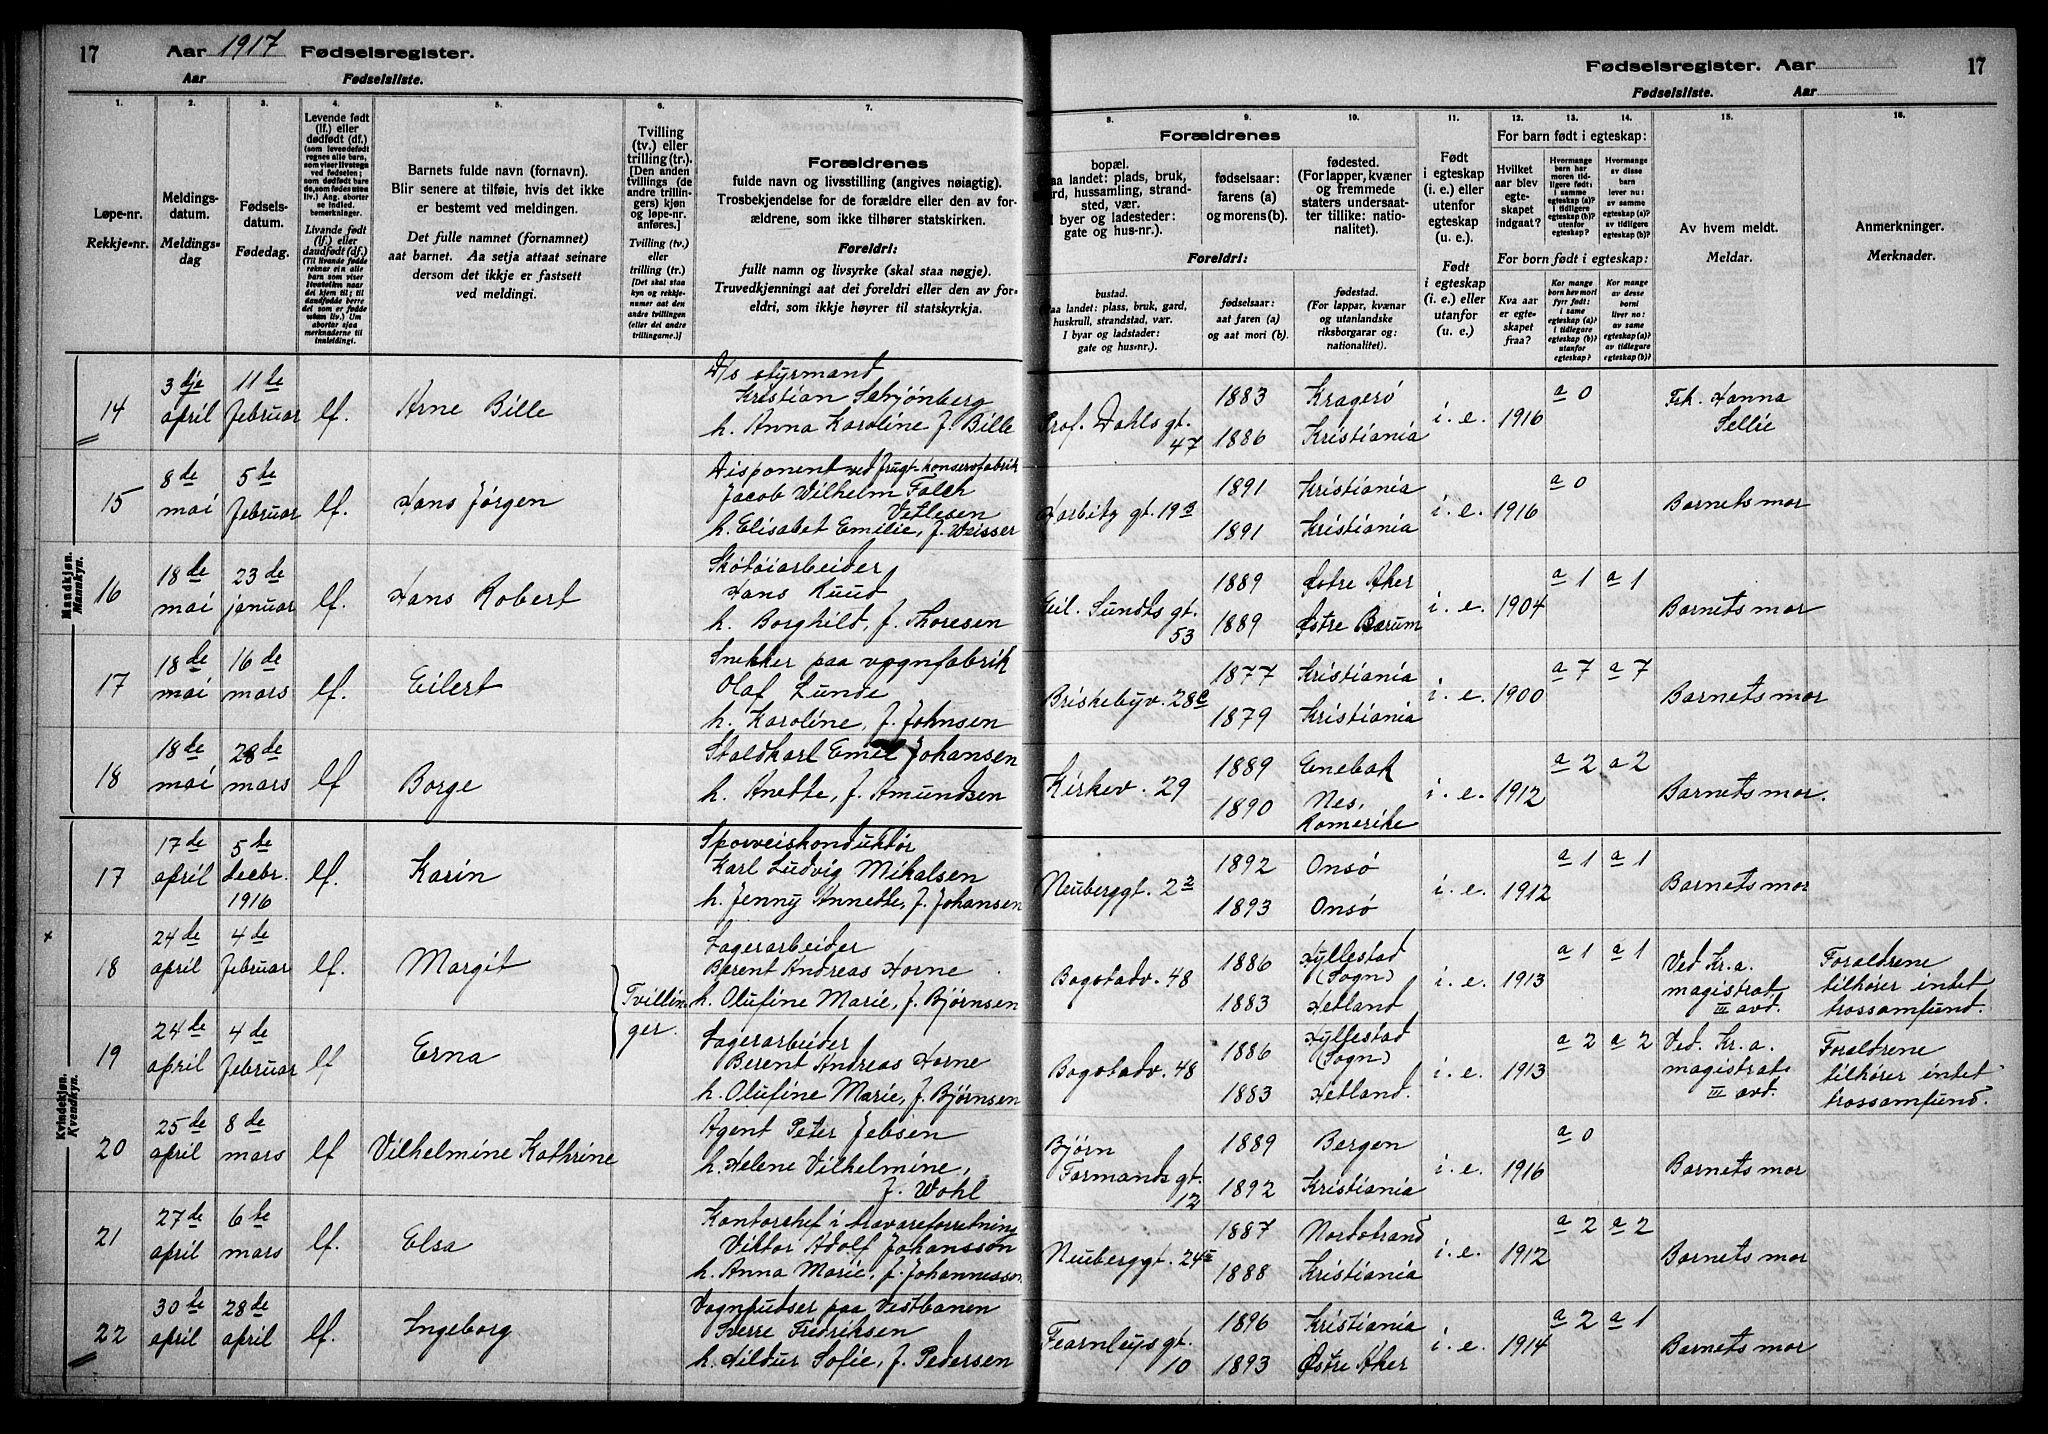 17 Aar 1917 Fødselsregister.
Aar Fødselsliste.
1.
Løpe-nr.
Rekkje-nr.
2.
Meldings-
datum.
Meldings-
dag
3.
Fødsels-
datum.
Fødedag.
4.
Levende født
(lf.) eller
dødfødt (df.)
5.
Barnets fulde navn (fornavn).
Blir senere at tilføie, hvis det ikke
er bestemt ved meldingen.
Det fulle namnet (fornamnet)
aat barnet. Aa setja attaat seinare
dersom det ikkje er fastsett
ved meldingi.
6.
Tvilling
(tv.) eller
trilling (tr.)
[Den anden
tvillings (de
andre trillin-
gers) kjøn
og løpe-nr.
anføres.]
Tvilling (tv.)
eller
trilling (tr.)
7.
Forældrenes
fulde navn og livsstilling (angives nøiagtig).
Trosbekjendelse for de forældre eller den av for-
ældrene, som ikke tilhører statskirken.
Foreldri:
fullt namn og livsyrke (skal staa nøgje).
Truvedkjenningi aat dei foreldri eller den av for-
eldri, som ikkje høyrer til statskyrkja.
Mandkjøn.
Mannkyn.
14 3dje april 11te februar lf. Arne Bille
D/s styrmand
Kristian Schjönberg
h. Anna Karoline f. Bille
15 8de mai 5te februar lf. Hans Jørgen
Disponent ved frugt-konservfabrik
Jacob Vilhelm Falch
Vetlesen
h. Elisabet Emilie, f. Weisser
16 18de mai 23de januar lf. Hans Robert
Skötöiarbeider
Hans Ruud
h. Borghild, f. Thoresen
17 18de mai 16de mars lf. Eilert
Snekker paa vognfabrik
Olaf Lunde
h. Karoline, f. Johnsen
18 18de mai 28de mars lf Borge
Staldkarl Emil Johansen
h. Anette, f. Amundsen
Kvindekjøn.
Kvendkyn.
17 17de april 5te decbr. 1916 lf. Karin
Sporveiskonduktör
Karl Ludvig Mikalsen
h. Jenny Annette, f. Johansen
18 24de april 4de februar lf. Margit
Tvillin-
ger.
Lagerarbeider
Berent Andreas Horne
h. Olufine Marie, f. Bjørnsen
19 24de april 4de februar lf Erna
Lagerarbeider
Berent Andreas Horne
h. Olufine Marie, f. Bjørnsen
20 25de april 8de mars lf Vilhelmine Kathrine
Agent Peter Jebsen
h. Helene Vilhelmine,
f. Wohl
21 27de april 6te mars lf. Elsa
Kontorchef i travareforretning
Viktor Adolf Johansson
h. Anna Marie, f. Johannesson
22 30te april 28de april lf. Ingeborg
Vognpudser paa Vestbanen
Sverre Fredriksen
h. Hildur Sofie, f. Pedersen
Fødselsregister. Aar 17
Fødselsliste. Aar
8.
Forældrenes
bopæl.
gate og hus-nr.).
Foreldri:
bustad.
I byar og ladstader:
gate og hus-nr.).
9.
fødselsaar:
farens (a)
og morens (b).
fødselsaar:
aat faren (a)
og aat mori (b).
10.
fødested.
(For lapper, kvæner
og fremmede
staters undersaat-
ter tillike: natio-
nalitet).
fødestad.
(For lappar, kvænar
og utanlandske
riksborgarar og:
nationalitet).
11.
Født
i egteskap
(i. e.) eller
utenfor
egteskap
(u. e.).
Født
i egteskap
(i. e.) eller
utanfor
(u. e.).
12. 13. 14.
For barn født i egteskap:
Hvilket
aar blev
egte-
skapet
indgaat?
For born født i egteskap:
Kva aar
er egte-
skapet
fraa?
15.
Av hvem meldt.
Meldar.
16.
Anmerkninger.
Merknader.
Prof. Dahls gt. 47 1883 1886 Kragerö Kristiania i. e. 1916 a 0 Frk. Hanna Sellie
Harbitz gt. 19 1891 1891 Kristiania Kristiania i. e. 1916 a 0 Barnets mor
Eil. Sundts gt. 53 1889 1889 Östre Aker Östre Bærum i. e. 1904 a 1 a 1 Barnets mor
Briskebyv. 28c 1877 1879 Kristiania Kristiania i. e. 1900 a 7 a 7 Barnets mor
Kirkev. 29 1889 1890 Enebak Nes, Romerike i. e. 1912 a 2 a 2 Barnets mor.
Neuberggt. 2 1892 1893 Onsö Onsö i. e. 1912 a 1 a 1 Barnets mor
Bogstadv. 48 1886 1883 Hyllestad (Sogn) Hetland i. e. 1913 a 1 a 1 Ved Kr.a. magistrat, III avd. Forældrene tilhører intet trossamfund.
Bogstadv. 48 1886 1883 Hyllestad (Sogn) Hetland. i. e. 1913 a 2 a 2 Ved. Kr. a. magistrat III avd. Forældrene tilhører intet trossamfund.
Bjørn Farmands gt. 12 1889 1892 Bergen Kristiania i. e. 1916 a 0 Barnets mor
Neuberggt. 24 1887 1888 Nordstrand Kristiania i. e. 1912 a 2 a 2 Barnets mor
Fearnleys gt. 10 1896 1893 Kristiania Østre Aker i. e. 1914 a 2 a 1 Barnets mor